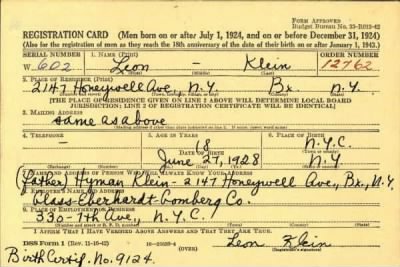 Form Approved
Budget Bureau No. 33-R012-42
REGISTRATION CARD (Men born on or after July 1, 1924, and on or before December 31, 1924)
(Also for the registration of men as they reach the 18th anniversary of the date of their birth on or after January 1, 1943.)
SERIAL NUMBER 1. NAME (Print) ORDER NUMBER
W 602 Leon - Klein 12762
(First) (Middle) (Last)
2. PLACE OF RESIDENCE (Print)
2147 Honeywell Ave., N.Y. Bx. N.Y.
[THE PLACE OF RESIDENCE GIVEN ON LINE 2 ABOVE WILL DETERMINE LOCAL BOARD
JURISDICTION; LINE 2 OF REGISTRATION CERTIFICATE WILL BE IDENTICAL]
3. MAILING ADDRESS
same as above
4. TELEPHONE 5. AGE IN YEARS 6. PLACE OF BIRTH
- 18 N.Y.C.
DATE OF BIRTH
June 27, 1928 N.Y.
7. NAME AND ADDRESS OF PERSON WHO WILL ALWAYS KNOW YOUR ADDRESS
(father) Hyman Klein - 2147 Honeywell Ave., Bx., N.Y.
Glass-Eberhardt Gomberg Co.
9. PLACE OF EMPLOYMENT OR BUSINESS
330-7th Ave., N.Y.C.
I AFFIRM THAT I HAVE VERIFIED ABOVE ANSWERS AND THAT THEY ARE TRUE.
DSS Form 1 (Rev. 11-16-42) (OVER) Leon Klein
(Registrant's signature)
Birth Certif. No. 9124.